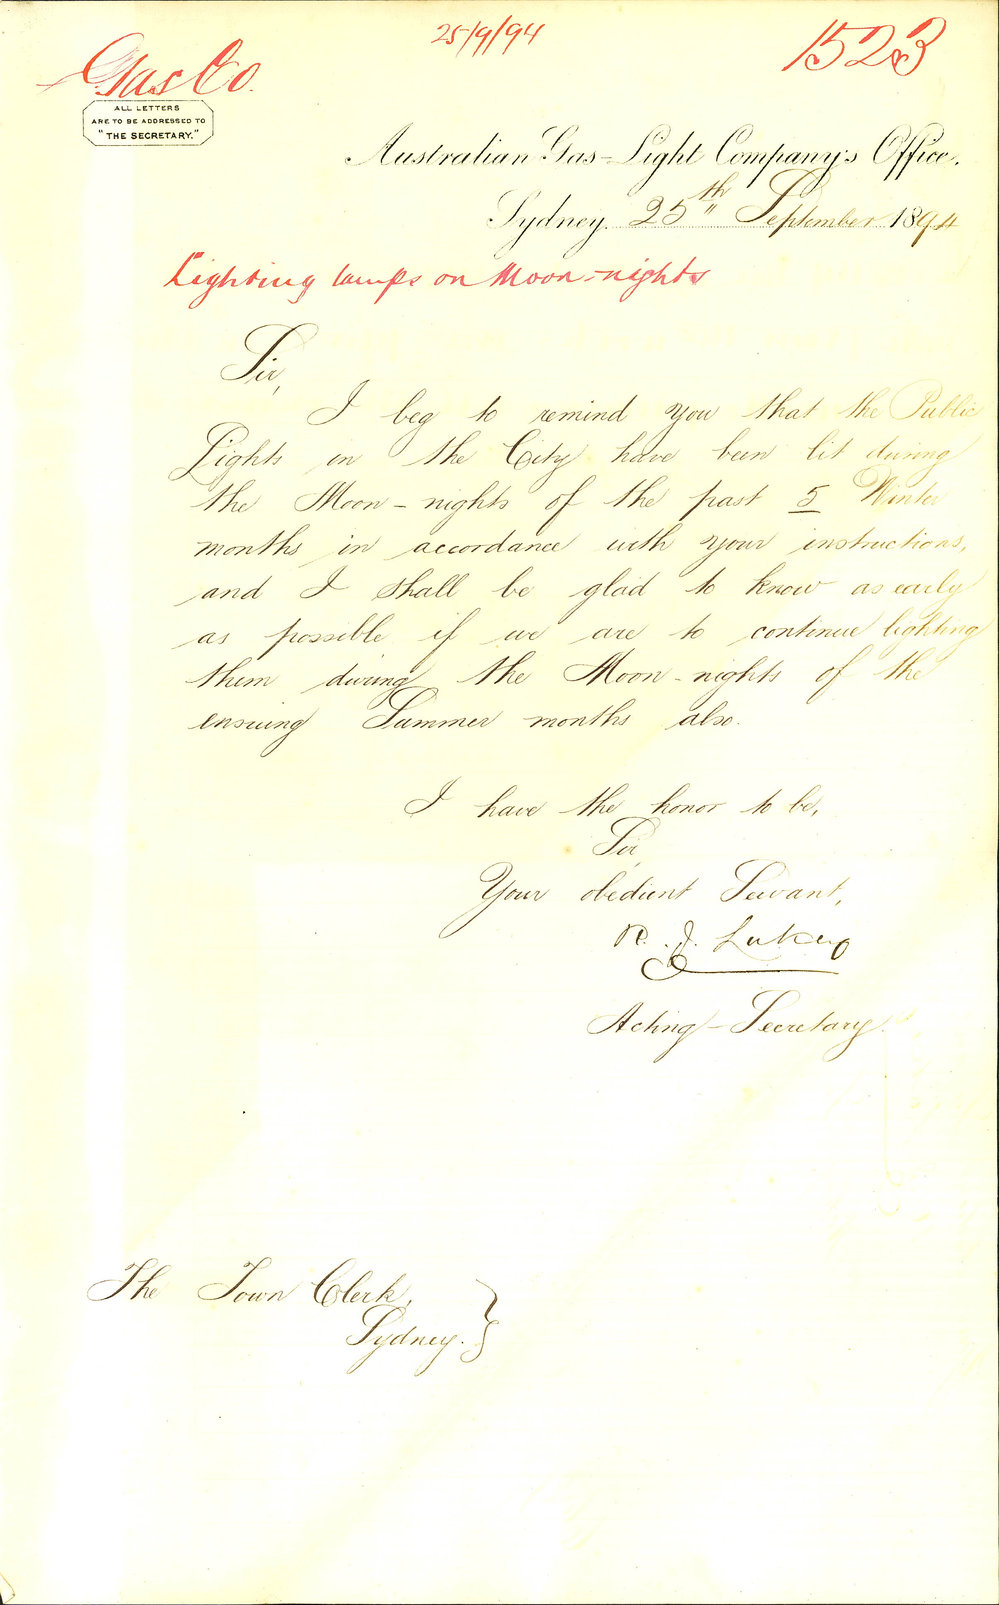 25/9/94
1523
Gas Co.
ALL LETTERS
ARE TO BE ADDRESSED TO
"THE SECRETARY."
Australian Gas-Light Company's Office.
Sydney. 25th September 1894
Lighting lamps on Moon-nights
Sir,
I beg to remind you that the Public
Lights in the City have been lit during
the Moon-nights of the past 5 Winter
months in accordance with your instructions,
and I shall be glad to know as early
as possible if we are to continue lighting
them during the Moon-nights of the
ensuing Summer months also.
I have the honor to be,
Sir,
Your obedient Servant,
R. J. Lukey
Acting-Secretary.
The Town Clerk,
Sydney.